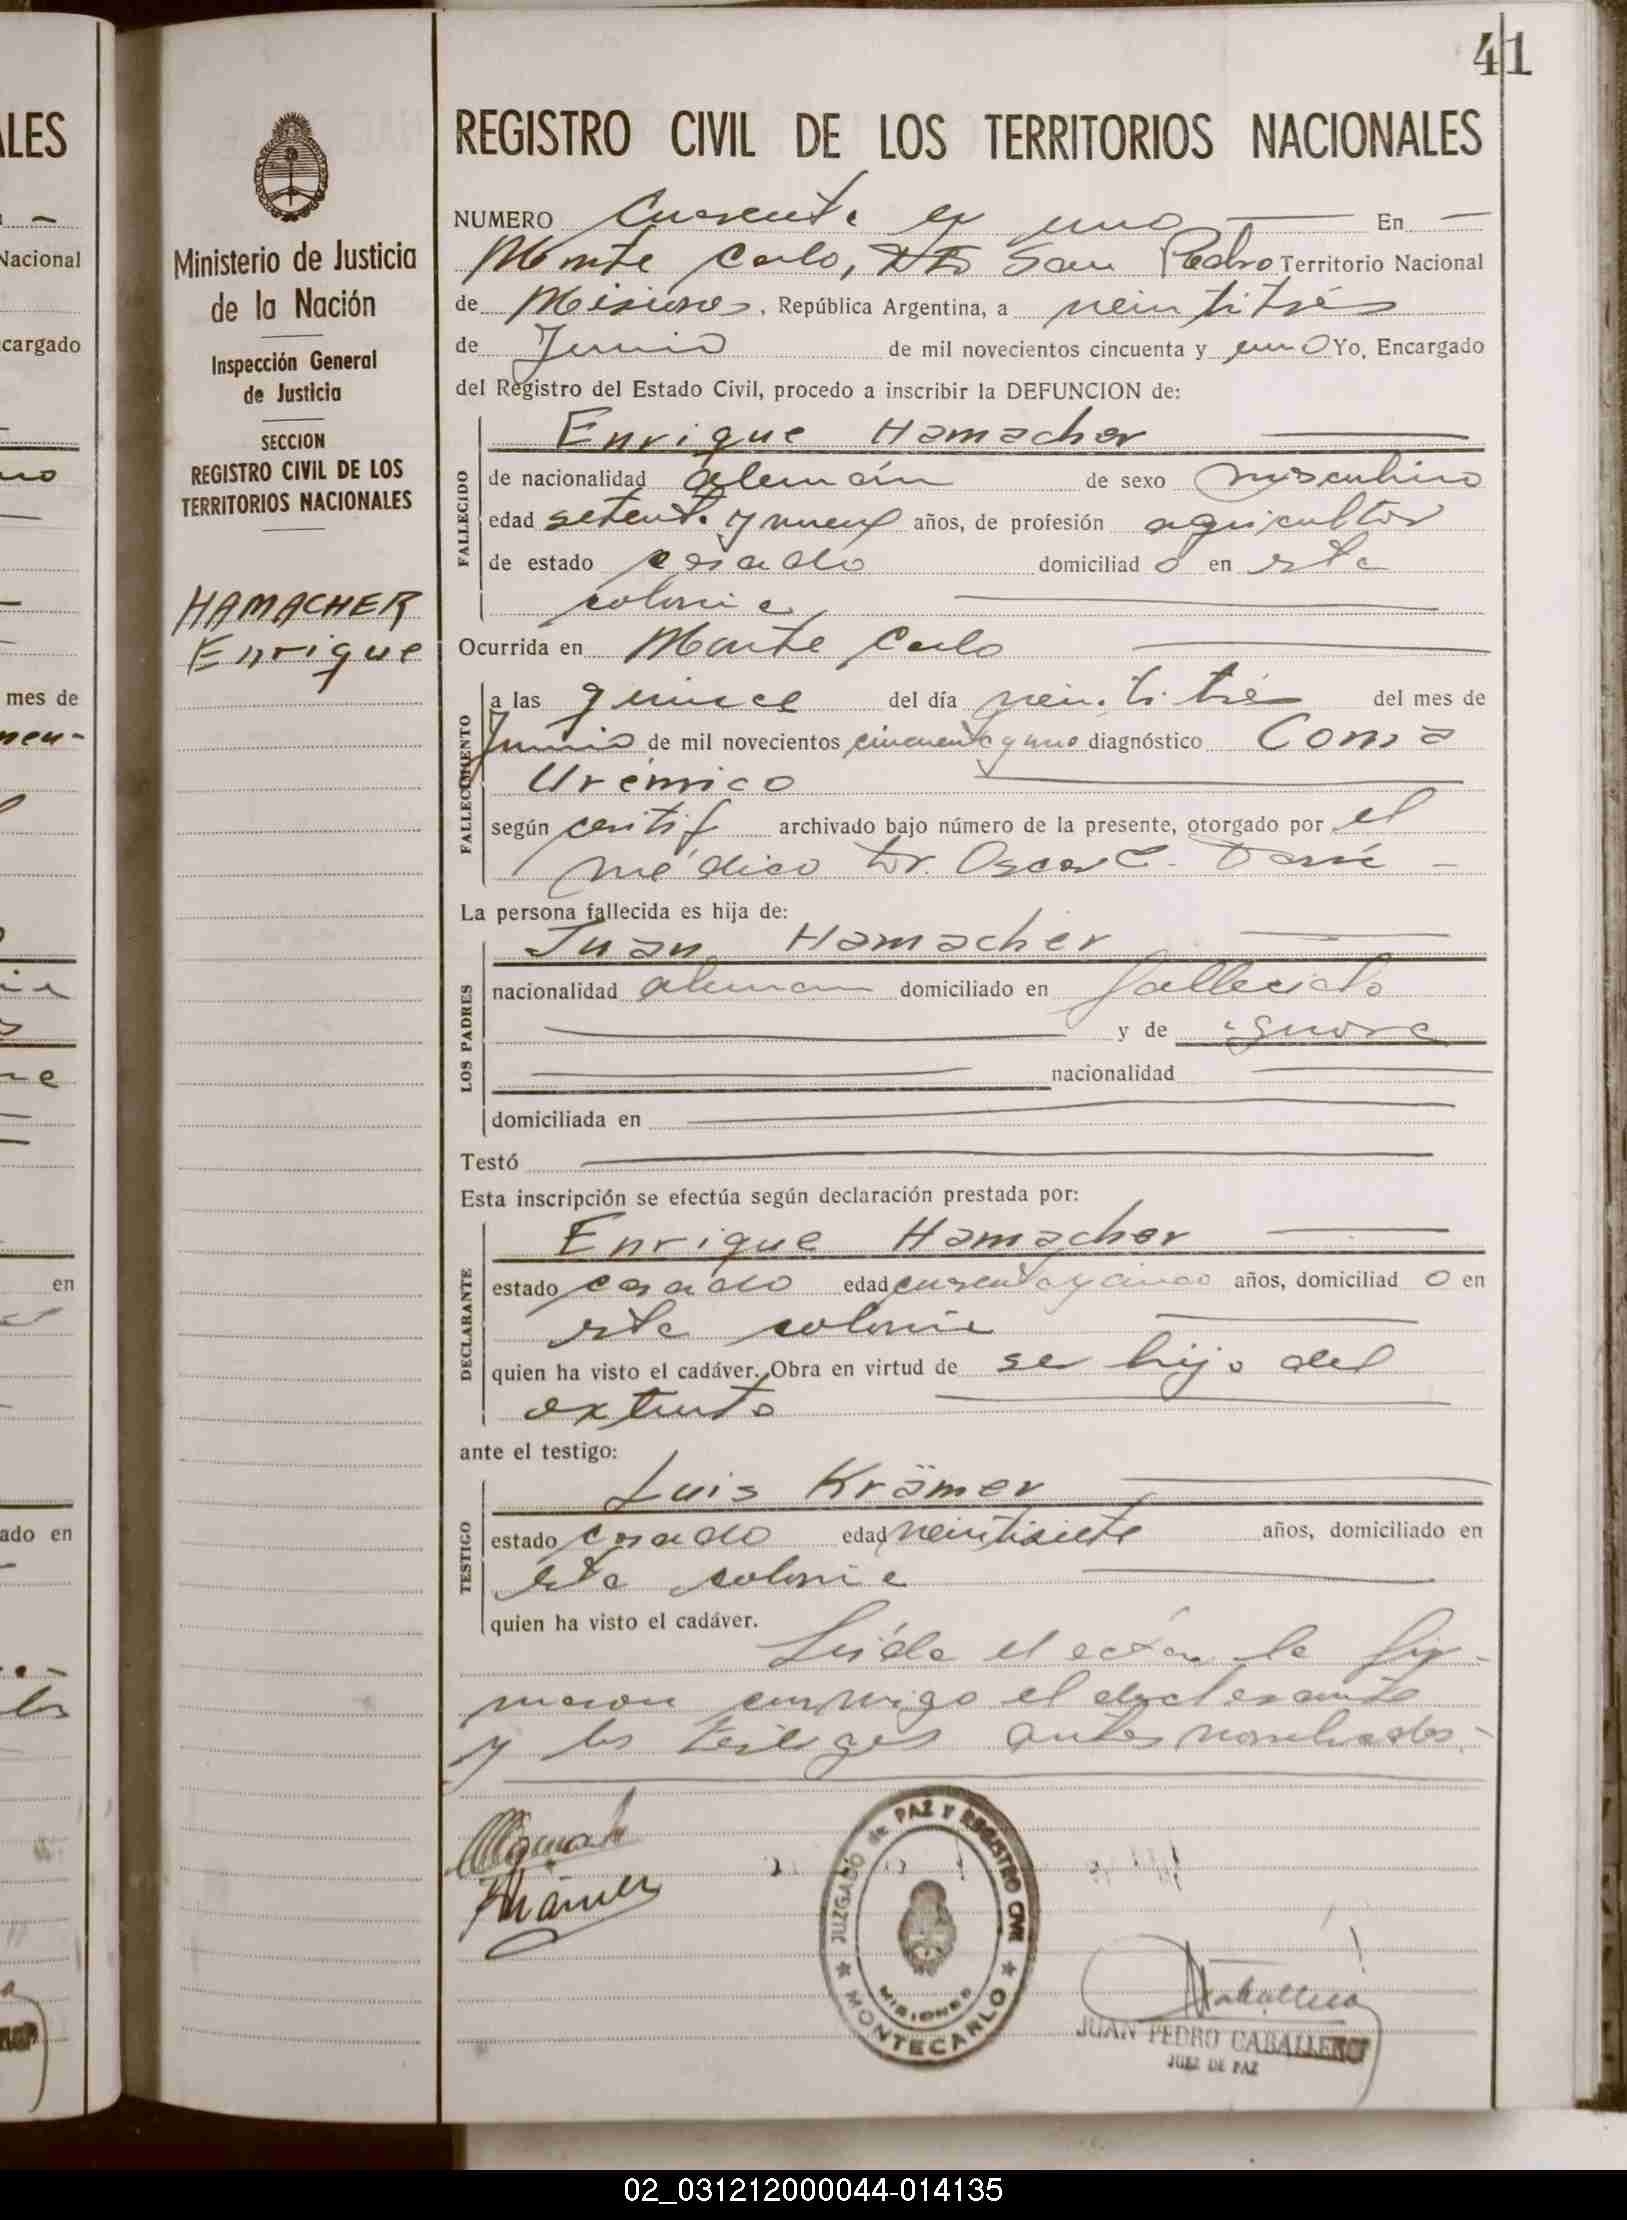 41
REGISTRO CIVIL DE LOS TERRITORIOS NACIONALES
Ministerio de Justicia
de la Nación
Inspección General
de Justicia
SECCION
REGISTRO CIVIL DE LOS
TERRITORIOS NACIONALES
HAMACHER
Enrique
NUMERO Cuarenta y uno En
Monte Carlo, Dto San Pedro Territorio Nacional
de Misiones, República Argentina, a veintitrés
de Junio de mil novecientos cincuenta y uno Yo, Encargado
del Registro del Estado Civil, procedo a inscribir la DEFUNCION de:
FALLECIDO
Enrique Hamacher
de nacionalidad alemán de sexo masculino
edad setenta y nueve años, de profesión agricultor
de estado casado domiciliad o en esta
colonia
Ocurrida en Monte Carlo
FALLECIMIENTO
a las quince del día veintitrés del mes de
Junio de mil novecientos cincuenta y uno diagnóstico Coma
Urémico
según certif archivado bajo número de la presente, otorgado por el
médico Dr. Oscar C.
La persona fallecida es hija de:
LOS PADRES
Juan Hamacher
nacionalidad aleman domiciliado en fallecido
y de ignora
nacionalidad
domiciliada en
Testó
Esta inscripción se efectúa según declaración prestada por:
DECLARANTE
Enrique Hamacher
estado casado edad cuarenta y cinco años, domiciliad o en
esta colonia
quien ha visto el cadáver. Obra en virtud de ser hijo del
extinto
ante el testigo:
TESTIGO
Luis Krämer
estado casado edad veintisiete años, domiciliado en
esta colonia
quien ha visto el cadáver.
Leída el acta, la fir-
maron conmigo el declarante
y los testigos antes nombrados.-
Krämer
JUZGADO de PAZ Y REGISTRO CIVIL
MISIONES
MONTECARLO
JUAN PEDRO CABALLERO
JUEZ DE PAZ
ALES
Nacional
cargado
mes de
en
ado en
02_031212000044-014135